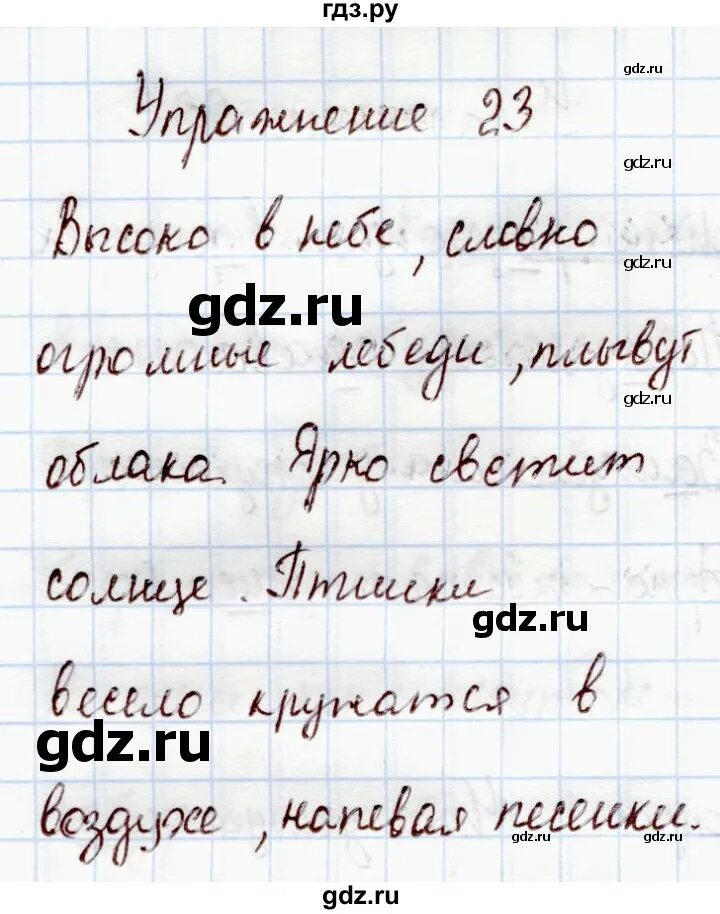 гдз.ру
gdz.ru
Упражнение 23
gdz.ru
Высоко в небе, словно
gdz.ru
gdz.ru
огромные лебеди, плывут
gdz.ru
облака. Ярко светит
gdz.ru
солнце. Птички
gdz.ru
весело кружатся в
gdz.ru
gdz.ru
воздухе, напевая песенки.
gdz.ru
gdz.ru
gdz.ru